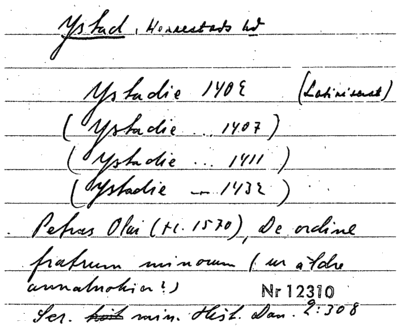 Ystad, Herrestads hd
Ystadie 1402 (Latiniserat)
(Ystadie ... 1407)
(Ystadie ... 1411)
(Ystadie — 1432)
Petrus Olai (†c. 1570), De ordine
fratrum minorum (ur äldre
annalnotiser?)
Nr 12310
Scr. min. Hist. Dan. 2:308